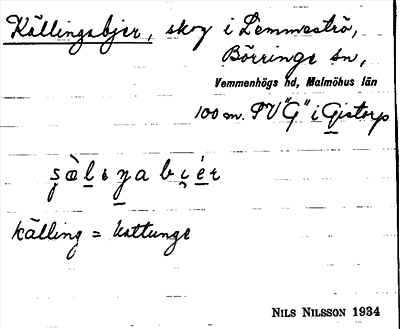 Källingabjer, skog i Lemmeströ,
Börringe sn,
Vemmenhögs hd, Malmöhus län
100 m. SV "G" i Gistorp
källing = kattunge
NILS NILSSON 1934